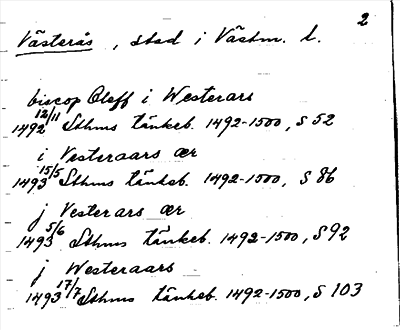 2
Västerås, stad i Västm. l.
biscop Oleff i Westerars
1492 12/11 Sthms tänkeb. 1492-1500, S 52
i Vesteraars ær
1493 15/5 Sthms tänkeb. 1492-1500, S 86
j Vesterars ær
1493 5/6 Sthms tänkeb. 1492-1500, S 92
j Westeraars
1493 17/7 Sthms tänkeb. 1492-1500, S 103